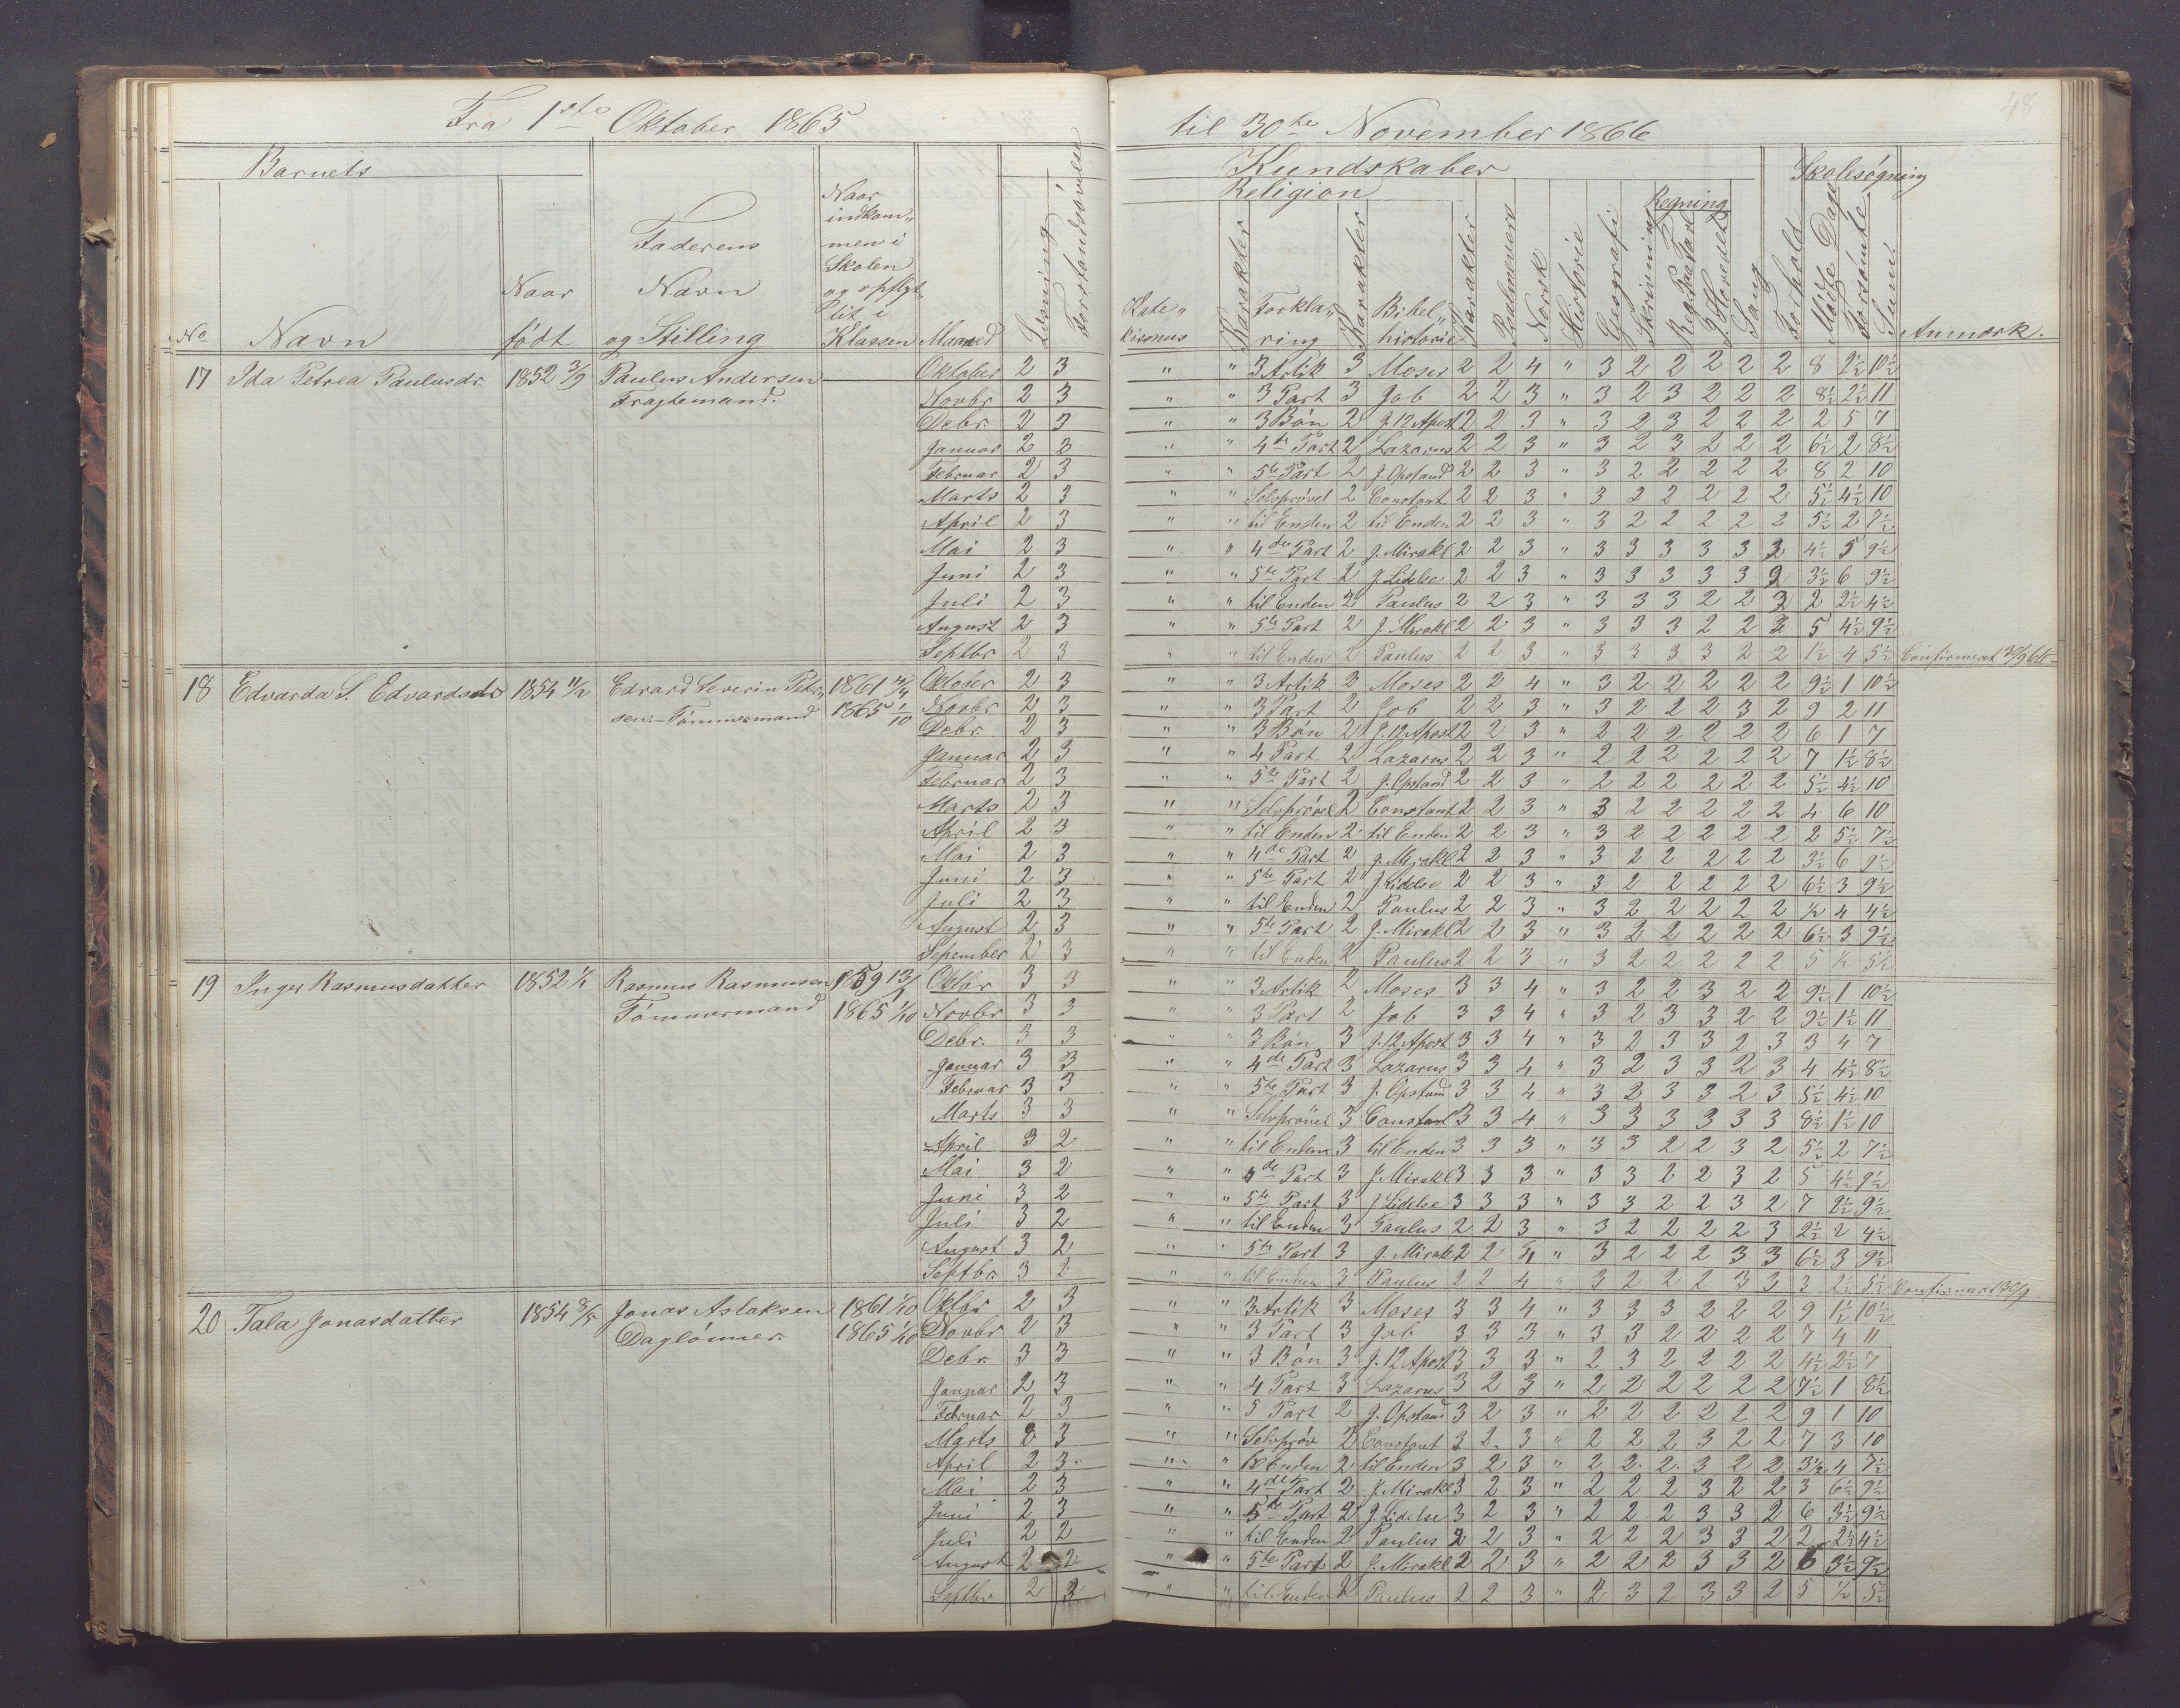 48
Fra 1ste Oktober 1865 til 30te November 1866
Barnets
Kundskaber Skolesøgning
Religion Regning
No Navn Naar født Faderens Navn og Stilling Naar indkom„ men i Skolen og opflyt„ tet i Klassen Maaned Læsning Forstandsøvelse Kate„ kismus Karakter Forkla„ ring Karakter Bibel„ historie Karakter Psalmevers Norsk Historie Geografi Skrivning Reg. paa Tavl i Hovedet Sang Forhold Mødte Dage Forsømte Sum. Anmærk.
17 Ida Petrea Paulusdr. 1852 3/9 Paulus Andersen Oktober 2 3 " " 3 Artik 3 Moses 2 2 4 " 3 2 2 2 2 2 8 2½ 10½
Fragtemand. Novbr 2 3 " " 3 Part 3 Job 2 2 3 " 3 2 3 2 2 2 8½ 2½ 11
Debr. 2 3 " " 3 Bøn 2 J. 12 Apost 2 2 3 " 3 2 3 2 2 2 2 5 7
Januar 2 3 " " 4de Part 2 Lazarus 2 2 3 " 3 2 3 2 2 2 6½ 2 8½
Februar 2 3 " " 5te Part 2 J. Opstand 2 2 3 " 3 2 2 2 2 2 8 2 10
Marts 2 3 " " Selvprøvel 2 Constant 2 2 3 " 3 2 2 2 2 2 5½ 4½ 10
April 2 3 " " til Enden 2 til Enden 2 2 3 " 3 2 2 2 2 2 5½ 2 7½
Mai 2 3 " " 4de Part 2 J. Mirakl 2 2 3 " 3 3 3 3 3 2 4½ 5 9½
Juni 2 3 " " 5te Part 2 J. Lidelse 2 2 3 " 3 3 3 3 3 2 3½ 6 9½
Juli 2 3 " " til Enden 2 Paulus 2 2 3 " 3 3 3 2 2 2 2 2½ 4½
August 2 3 " " 5te Part 2 J. Mirakl 2 2 3 " 3 3 3 2 2 2 5 4½ 9½
Septbr 2 3 " " til Enden 2 Paulus 2 2 3 " 3 3 3 3 2 2 1½ 4 5½ Confirmeret 30/9 66
18 Edvarda S. Edvardsdr 1854 11/2 Edvard Severin Peter„ 1861 Oktober 2 3 " " 3 Artik 3 Moses 2 2 4 " 3 2 2 2 2 2 9½ 1 10½
sen. - Tømmermand 1865 1/10 Novbr 2 3 " " 3 Part 2 Job 2 2 3 " 3 2 2 2 3 2 9 2 11
Debr. 2 3 " " 3 Bøn 2 J. 12 Apost 2 2 3 " 2 2 2 2 2 2 6 1 7
Januar 2 3 " " 4 Part 2 Lazarus 2 2 3 " 2 2 2 2 2 2 7 1½ 8½
Februar 2 3 " " 5te Part 2 J. Opstand 2 2 3 " 2 2 2 2 2 2 5½ 4½ 10
Marts 2 3 " " Selvprøvel 2 Constant 2 2 3 " 3 2 2 2 2 2 4 6 10
April 2 3 " " til Enden 2 til Enden 2 2 3 " 3 2 2 2 2 2 2 5½ 7½
Mai 2 3 " " 4de Part 2 J. Mirakl 2 2 3 " 3 2 2 2 2 2 3½ 6 9½
Juni 2 3 " " 5te Part 2 J. Lidelse 2 2 3 " 3 2 2 2 2 2 6½ 3 9½
Juli 2 3 " " til Enden 2 Paulus 2 2 3 " 3 2 2 2 2 2 ½ 4 4½
August 2 3 " " 5te Part 2 J. Mirakl 2 2 3 " 3 2 2 2 2 2 6½ 3 9½
Sepember 2 3 " " til Enden 2 Paulus 2 2 3 " 3 2 2 2 2 2 5 ½ 5½
19 Inger Rasmusdatter 1852 1/1 Rasmus Rasmusen 1859 Oktbr 3 3 " " 3 Artik 2 Moses 3 3 4 " 3 2 2 3 2 2 9½ 1 10½
Tømmermand 1865 1/10 Novbr 3 3 " " 3 Part 2 Job 3 3 4 " 3 2 3 3 2 2 9½ 1½ 11
Debr. 3 3 " " 3 Bøn 3 J. 12 Apost 3 3 4 " 3 2 3 3 2 3 3 4 7
Januar 3 3 " " 4de Part 3 Lazarus 3 3 4 " 3 2 3 3 2 3 4 4½ 8½
Februar 3 3 " " 5te Part 3 J. Opstand 3 3 4 " 3 2 3 3 2 3 5½ 4½ 10
Marts 3 3 " " Selvprøvel 3 Constant 3 3 4 " 3 3 3 3 3 3 8½ 1½ 10
April 3 2 " " til Enden 3 til Enden 3 3 3 " 3 3 2 2 3 2 5½ 2 7½
Mai 3 2 " " 4de Part 3 J. Mirakl 3 3 3 " 3 3 2 2 3 2 5 4½ 9½
Juni 3 2 " " 5te Part 3 J. Lidelse 3 3 3 " 3 3 2 2 3 2 7 2½ 9½
Juli 3 2 " " til Enden 3 Paulus 2 2 3 " 3 2 2 2 2 3 2½ 2 4½
August 3 2 " " 5te Part 3 J. Mirakl 2 2 4 " 3 2 2 2 3 3 6½ 3 9½
Septbr. 3 2 " " til Enden 3 Paulus 2 2 4 " 3 2 2 2 3 3 3 2½ 5½ Confirmeret 30/9
20 Tala Jonasdatter 1854 8/5 Jonas Aslaksen 1861 1/10 Oktbr 2 3 " " 3 Artik 3 Moses 3 3 4 " 3 3 3 2 2 2 9 1½ 10½
Daglønner. 1865 1/10 Novbr 2 3 " " 3 Part 3 Job 3 3 3 " 3 3 2 2 2 2 7 4 11
Debr. 3 3 " " 3 Bøn 3 J. 12 Apost 3 3 3 " 2 3 2 2 2 2 4½ 2½ 7
Januar 2 3 " " 4 Part 3 Lazarus 3 2 3 " 2 2 2 2 2 2 7½ 1 8½
Februar 2 3 " " 5 Part 2 J. Opstand 3 2 3 " 2 2 2 2 2 2 9 1 10
Marts 2 3 " " Selvprøv 2 Constant 3 2. 3 " 2 2 2 3 2 2 7 3 10
April 2 3 " " til Enden 2 til Enden 3 2 3 " 2 2. 2. 3 2 2 3½ 4 7½
Mai 2 3 " " 4de Part 2 J. Mirakl 3 2 3 " 2 2 2 3 2 2 3 6½ 9½
Juni 2 3 " " 5te Part 2 J. Lidelse 3 2 3 " 2 2 2 3 3 2 6 3½ 9½
Juli 2 2 " " til Enden 2 Paulus 2 2 3 " 2 2 2 3 3 2 2 2½ 4½
August 2 2 " " 5te Part 2 J. Mirakl 2 2 3 " 2 2 2 3 3 2 6 3½ 9½
Septbr 2 3 " " til Enden 2 Paulus 2 2 3 " 2 3 2 3 3 2 5 ½ 5½